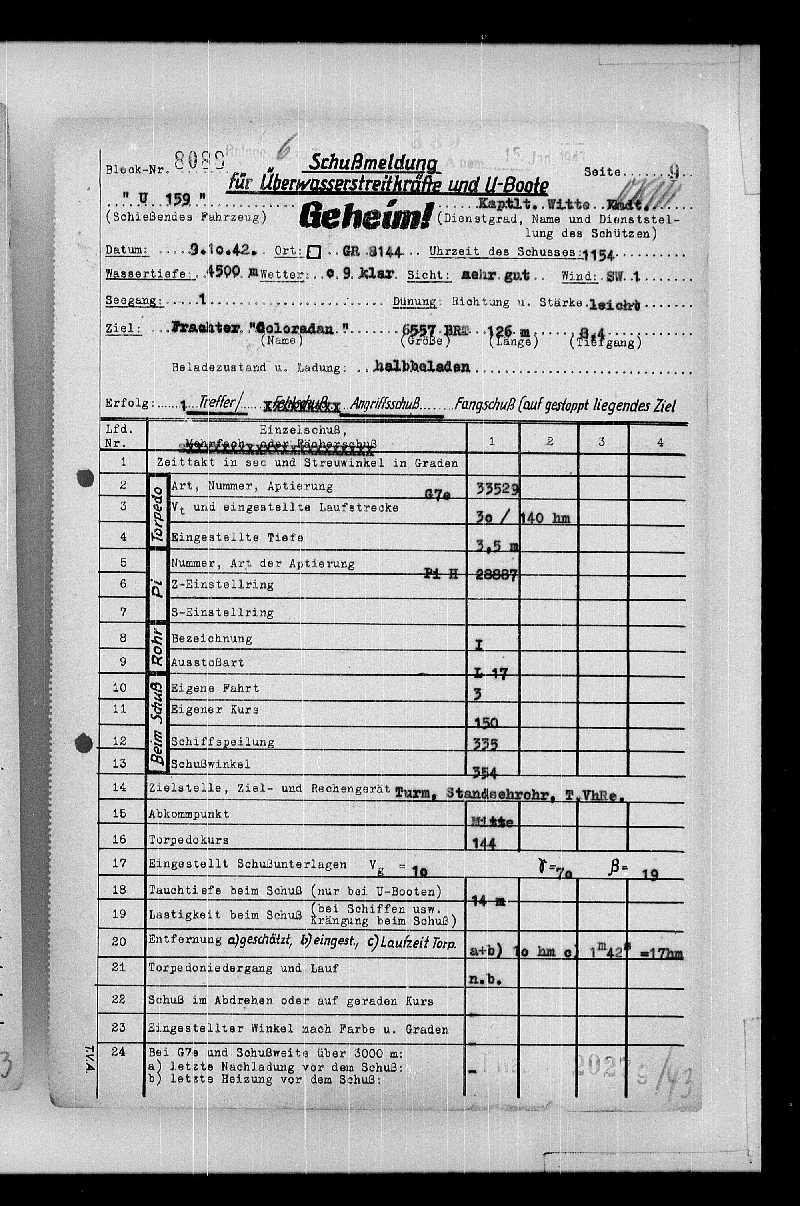 Block-Nr. 8089 6 15. Jan. 1943
Schußmeldung Seite 9.
für Überwasserstreitkräfte und U-Boote
" U 159 " Kaptlt. Witte Kmdt.
(Schießendes Fahrzeug) Geheim! (Dienstgrad, Name und Dienststel-
lung des Schützen)
Datum: 9.10.42. Ort: GR 8144 Uhrzeit des Schusses: 1154
Wassertiefe: 4500 m Wetter: o 9 klar Sicht: sehr gut Wind: SW 1
Seegang: 1 Dünung: Richtung u. Stärke leicht
Ziel: Frachter "Coloradan " 6557 BRT 126 m 8.4
(Name) (Größe) (Länge) (Tiefgang)
Beladezustand u. Ladung: halbbeladen
Erfolg: 1 Treffer/ Fehlschuß Angriffsschuß Fangschuß (auf gestoppt liegendes Ziel
Lfd. Nr. Einzelschuß, 1 2 3 4
Mehrfach- oder Fächerschuß
1 Zeittakt in sec und Streuwinkel in Graden
Torpedo
2 Art, Nummer, Aptierung G7e 33529
3 Vt und eingestellte Laufstrecke 3o / 140 hm
4 Eingestellte Tiefe 3,5 m
Pi
5 Nummer, Art der Aptierung Pi H 28887
6 Z-Einstellring
7 S-Einstellring
Rohr
8 Bezeichnung I
9 Ausstoßart L 17
Beim Schuß
10 Eigene Fahrt 3
11 Eigener Kurs 150
12 Schiffspeilung 335
13 Schußwinkel 354
14 Zielstelle, Ziel- und Rechengerät Turm, Standsehrohr, T.VhRe.
15 Abkommpunkt Mitte
16 Torpedokurs 144
17 Eingestellt Schußunterlagen Vg = 1o γ= 7o β= 19
18 Tauchtiefe beim Schuß (nur bei U-Booten) 14 m
19 Lastigkeit beim Schuß (bei Schiffen usw. Krängung beim Schuß)
20 Entfernung a) geschätzt, b) eingest., c) Laufzeit Torp. a+b) 1o hm c) 1m42s =17hm
21 Torpedoniedergang und Lauf n.b.
22 Schuß im Abdrehen oder auf geraden Kurs
23 Eingestellter Winkel nach Farbe u. Graden -
24 Bei G7e und Schußweite über 3000 m:
a) letzte Nachladung vor dem Schuß: -
b) letzte Heizung vor dem Schuß:
T.V.A.
2027 9/43